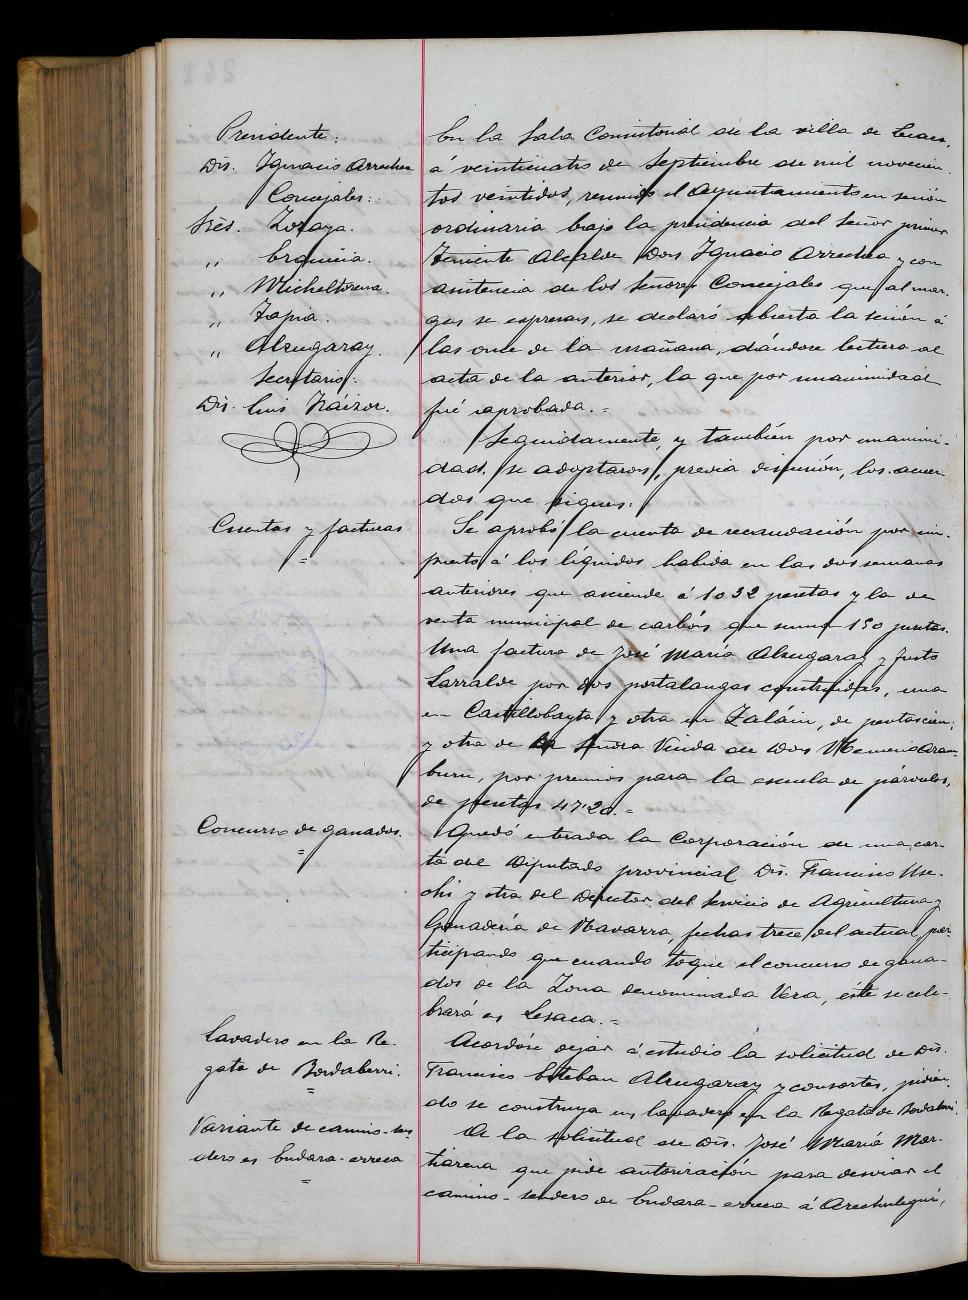 Presidente:
Dn. Ignacio Arrechea
Concejales:
Srés. Zozaya.
„ Erquicia.
„ Micheltorena.
„ Tapia.
„ Alzugaray.
Secretario:
Dn. Luis Izáizoz.
En la Sala Consistorial de la villa de Lesaca,
á veinticuatro de Septiembre de mil novecien-
tos veintidos, reunido el Ayuntamiento en sesión
ordinaria bajo la presidencia del Señor primer
Teniente Alcalde Don Ignacio Arrechea y con
asistencia de los Señores Concejales que al mar-
gen se expresan, se declaró abierta la sesión á
las once de la mañana, dándose lectura al
acta de la anterior, la que por unanimidad
fué aprobada.=
Seguidamente, y también por unanimi-
dad, se adoptaron, previa discusión, los acuer-
dos que siguen:
Cuentas y facturas
=
Se aprobó la cuenta de recaudación por im-
puesto á los líquidos habida en las dos semanas
anteriores que asciende á 1032 pesetas y la de
venta municipal de carbón que suma 150 pesetas.
Una factura de José María Alzugaray y Justo
Larralde por dos portalangas construidas, una
en Castillobayta y otra en Zaláin, de pesetas cien;
y otra de la Señora Viuda de Don Nemesio Aram-
buru, por premios para la escuela de párvulos,
de pesetas 47'20.=
Concurso de ganados.
=
Quedó enterada la Corporación de una car-
ta del Diputado provincial Dn. Francisco Use-
chi y otra del Director del Servicio de Agricultura y
Ganadería de Navarra, fechas trece del actual, par-
ticipando que cuando toque el concurso de gana-
dos de la Zona denominada Vera, éste se cele-
brará en Lesaca.=
Lavadero en la Re-
gata de Bordaberri.
=
Acordóse dejar á estudio la solicitud de Dn.
Francisco Esteban Alzugaray y consortes, pidien-
do se construya un lavadero en la Regata de Bordaberri.
Variante de camino-sen-
dero en Endara-erreca
=
A la solicitud de Dn. José María Mar-
tiarena que pide autorización para desviar el
camino-sendero de Endara-erreca á Arechulegui,